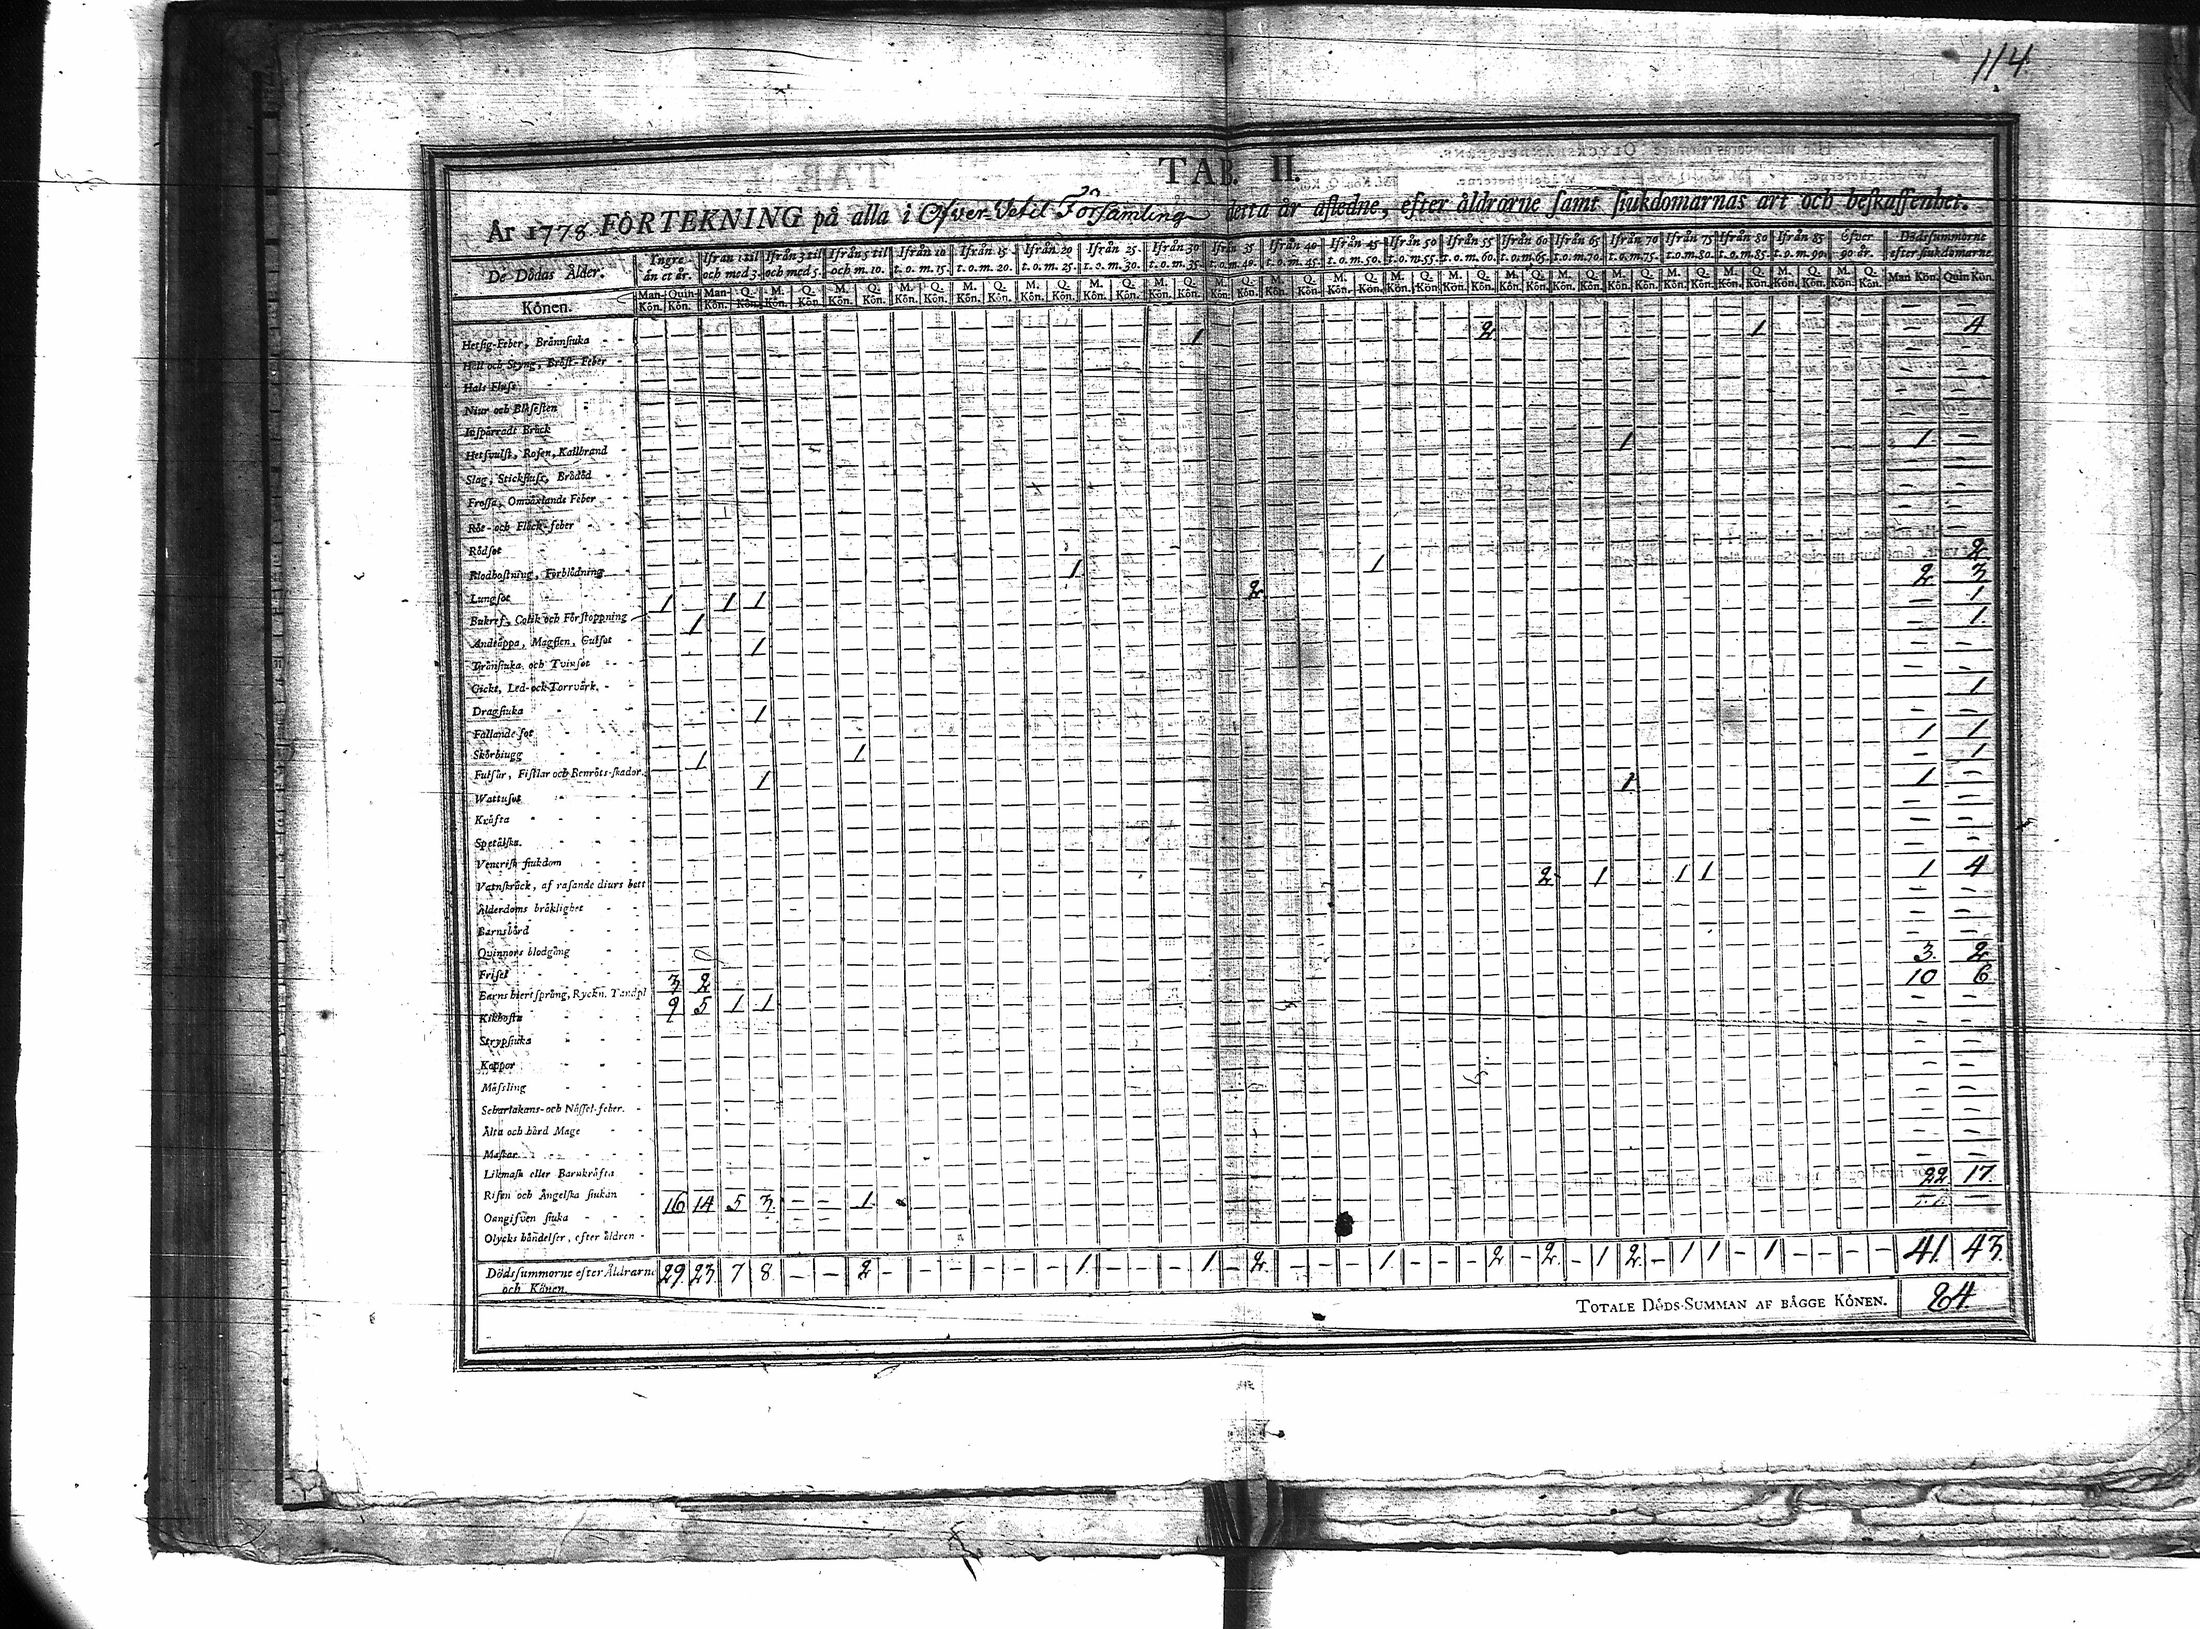 114
TAB. II.
År 1778 FÖRTEKNING på alla i Öfver Vetil Församling detta år afledne, efter åldrarne samt siukdomarnas art och beskaffenhet.
De Dödas Ålder. Yngre än et år. Ifrån 1 til och med 3. Ifrån 3 til och med 5. Ifrån 5 til och m. 10. Ifrån 10 t. o. m. 15. Ifrån 15 t. o. m. 20. Ifrån 20 t. o. m. 25. Ifrån 25 t. o. m. 30. Ifrån 30 t. o. m. 35. Ifrån 35 t. o. m. 40. Ifrån 40 t. o. m. 45. Ifrån 45 t. o. m. 50. Ifrån 50 t. o. m. 55. Ifrån 55 t. o. m. 60. Ifrån 60 t. o. m. 65. Ifrån 65 t. o. m. 70. Ifrån 70 t. o. m. 75. Ifrån 75 t. o. m. 80. Ifrån 80 t. o. m. 85. Ifrån 85 t. o. m. 90. Öfver 90 år. Dödssummorne efter siukdomarne
Könen. Man Kön. Quin Kön. Man Kön. Q. Kön. M. Kön. Q. Kön. M. Kön. Q. Kön. M. Kön. Q. Kön. M. Kön. Q. Kön. M. Kön. Q. Kön. M. Kön. Q. Kön. M. Kön. Q. Kön. M. Kön. Q. Kön. M. Kön. Q. Kön. M. Kön. Q. Kön. M. Kön. Q. Kön. M. Kön. Q. Kön. M. Kön. Q. Kön. M. Kön. Q. Kön. M. Kön. Q. Kön. M. Kön. Q. Kön. M. Kön. Q. Kön. M. Kön. Q. Kön. M. Kön. Q. Kön. Man Kön. Quin Kön.
Hetsig-Feber, Brännsiuka
Håll och Styng, Bröst-Feber 1 2 1 4
Hals Fluss
Niur och Blåsesten
Inspärradt Bråck
Hetsvulst, Rosen, Kallbrand
Slag, Stickfluss, Brådöd 1 1
Frossa, Omväxlande Feber
Röt- och Fläck-feber
Rödsot
Blodhostning, Förblödning
Lungsot 1 1 2
Bukref, Colik och Förstoppning 1 1 1 2 2 3
Andtäppa, Magsten, Gulsot 1 1
Trånsiuka och Tvinsot 1 1
Gickt, Led- och Torrvärk
Dragsiuka
Fallande sot 1 1
Skörbiugg
Fulsår, Fistlar och Benröts-skador 1 1 1 1
Wattusot 1 1 1 1
Kräfta
Spetälska
Venerisk siukdom
Vatnskräck, af rasande diurs bett
Ålderdoms bräklighet 2 1 1 1 1 4
Barnsbörd
Quinnors blodgång
Frisel
Barns hiertsprång, Ryckn. Tandpl 3 2 3 2
Kikhosta 9 5 1 1 10 6
Strypsiuka
Koppor
Mässling
Scharlakans- och Nässel-feber
Älta och hård Mage
Maskar
Likmask eller Barnkräfta
Risen och Ängelska siukan
Oangifven siuka 16 14 5 3 1 22 17
Olycks händelser, efter åldren
Dödssummorne efter Åldrarne och Könen. 29 23 7 8 – – 2 – – – – – – 1 – – – 1 – 2 – – – 1 – – – 2 – 2 – 1 2 – 1 1 – 1 – – – – 41 43
TOTALE DÖDS-SUMMAN AF BÄGGE KÖNEN. 84